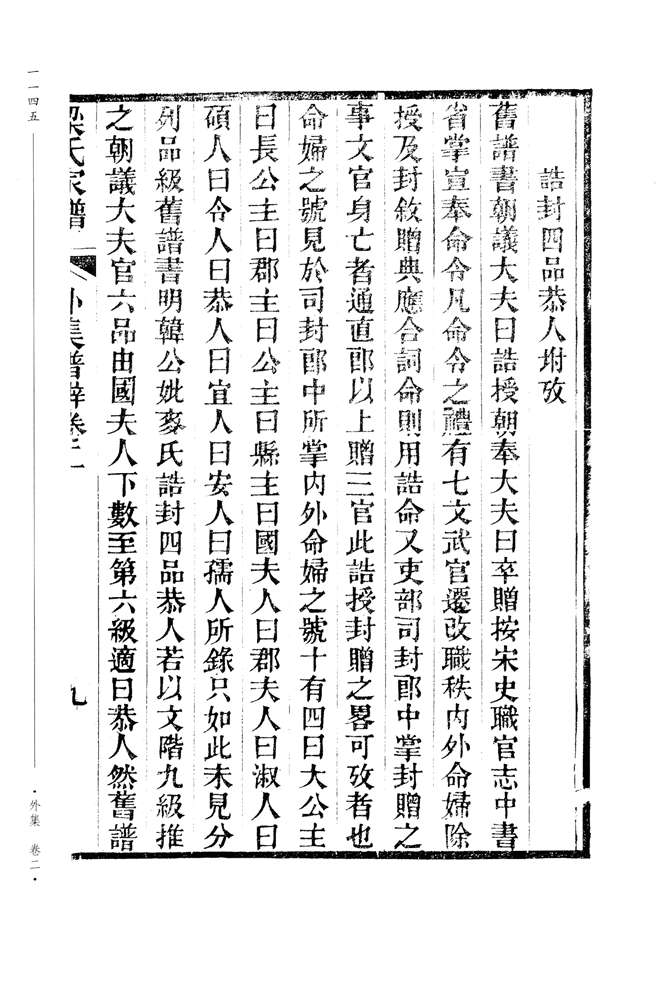 誥封四品恭人坿攷
舊譜書朝議大夫曰誥授朝奉大夫曰卒贈按宋史職官志中書
省掌宣奉命令凡命令之體有七文武官遷改職秩内外命婦除
授及封敘贈典應合詞命則用誥命又吏部司封郎中掌封贈之
事文官身亡者通直郎以上贈三官此誥授封贈之畧可攷者也
命婦之號見於司封郎中所掌内外命婦之號十有四曰大公主
曰長公主曰郡主曰公主曰縣主曰國夫人曰郡夫人曰淑人曰
碩人曰令人曰恭人曰宜人曰安人曰孺人所錄只如此未見分
列品級舊譜書明韓公妣麥氏誥封四品恭人若以文階九級推
之朝議大夫官六品由國夫人下數至第六級適曰恭人然舊譜
梁氏家譜 外集譜辭卷二 九
一一四五
·外集 卷二·